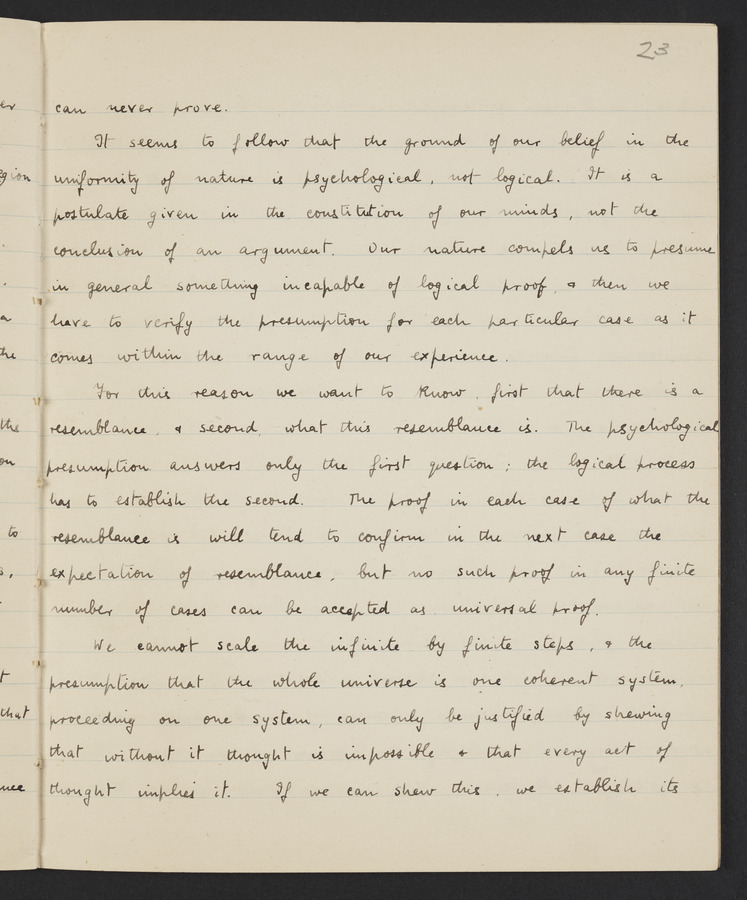 23
can never prove.
It seems to follow that the ground of our belief in the
uniformity of nature is psychological, not logical. It is a
postulate given in the constitution of our minds, not the
conclusion of an argument. Our nature compels us to presume
in general something incapable of logical proof, & then we
have to verify the presumption for each particular case as it
comes within the range of our experience.
For this reason we want to know, first that there is a
resemblance, & second, what this resemblance is. The psychological
presumption answers only the first question; the logical process
has to establish the second. The proof in each case of what the
resemblance is will tend to confirm in the next case the
expectation of resemblance, but no such proof in any finite
number of cases can be accepted as universal proof.
We cannot scale the infinite by finite steps, & the
presumption that the whole universe is one coherent system,
proceeding on one system, can only be justified by shewing
that without it thought is impossible & that every act of
thought implies it. If we can shew this, we establish its